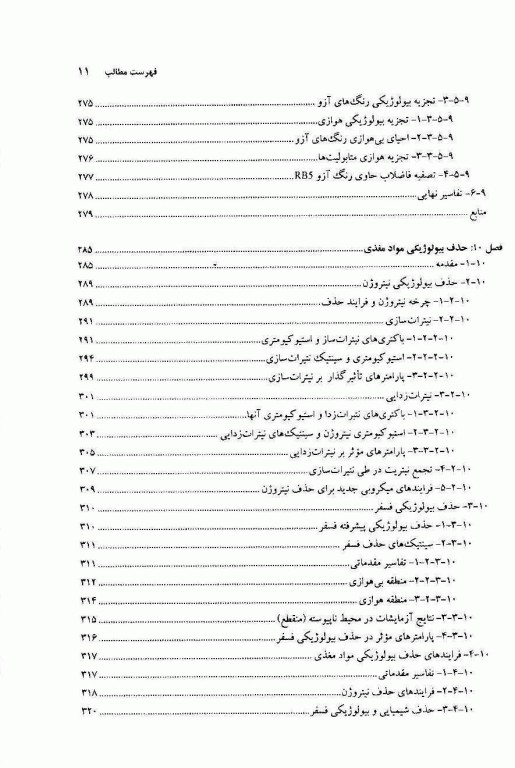 فهرست مطالب ۱۱
۹-۵-۳- تجزیه بیولوژیکی رنگ‌های آزو ........ ۲۷۵
۹-۵-۳-۱- تجزیه بیولوژیکی هوازی ........ ۲۷۵
۹-۵-۳-۲- احیای بی‌هوازی رنگ‌های آزو ........ ۲۷۵
۹-۵-۳-۳- تجزیه هوازی متابولیت‌ها ........ ۲۷۶
۹-۵-۴- تصفیه فاضلاب حاوی رنگ آزو RB5 ........ ۲۷۷
۹-۶- تفاسیر نهایی ........ ۲۷۸
منابع ........ ۲۷۹
فصل ۱۰: حذف بیولوژیکی مواد مغذی ........ ۲۸۵
۱۰-۱- مقدمه ........ ۲۸۵
۱۰-۲- حذف بیولوژیکی نیتروژن ........ ۲۸۹
۱۰-۲-۱- چرخه نیتروژن و فرایند حذف ........ ۲۸۹
۱۰-۲-۲- نیترات‌سازی ........ ۲۹۱
۱۰-۲-۲-۱- باکتری‌های نیترات‌ساز و استیوکیومتری ........ ۲۹۱
۱۰-۲-۲-۲- استیوکیومتری و سینتیک نتیرات‌سازی ........ ۲۹۴
۱۰-۲-۲-۳- پارامترهای تأثیرگذار بر نیترات‌سازی ........ ۲۹۹
۱۰-۲-۳- نیترات‌زدایی ........ ۳۰۱
۱۰-۲-۳-۱- باکتری‌های نتیرات‌زدا و استیوکیومتری آنها ........ ۳۰۱
۱۰-۲-۳-۲- استیوکیومتری نیتروژن و سینتیک‌های نیترات‌زدایی ........ ۳۰۳
۱۰-۲-۳-۳- پارامترهای مؤثر بر نیترات‌زدایی ........ ۳۰۵
۱۰-۲-۴- تجمع نیتریت در طی نتیرات‌سازی ........ ۳۰۷
۱۰-۲-۵- فرایندهای میکروبی جدید برای حذف نیتروژن ........ ۳۰۹
۱۰-۳- حذف بیولوژیکی فسفر ........ ۳۱۰
۱۰-۳-۱- حذف بیولوژیکی پیشرفته فسفر ........ ۳۱۰
۱۰-۳-۲- سینتیک‌های حذف فسفر ........ ۳۱۱
۱۰-۳-۲-۱- تفاسیر مقدماتی ........ ۳۱۱
۱۰-۳-۲-۲- منطقه بی‌هوازی ........ ۳۱۲
۱۰-۳-۲-۳- منطقه هوازی ........ ۳۱۴
۱۰-۳-۳- نتایج آزمایشات در محیط ناپیوسته (منقطع) ........ ۳۱۵
۱۰-۳-۴- پارامترهای مؤثر در حذف بیولوژیکی فسفر ........ ۳۱۶
۱۰-۴- فرایندهای حذف بیولوژیکی مواد مغذی ........ ۳۱۷
۱۰-۴-۱- تفاسیر مقدماتی ........ ۳۱۷
۱۰-۴-۲- فرایندهای حذف نیتروژن ........ ۳۱۸
۱۰-۴-۳- حذف شیمیایی و بیولوژیکی فسفر ........ ۳۲۰